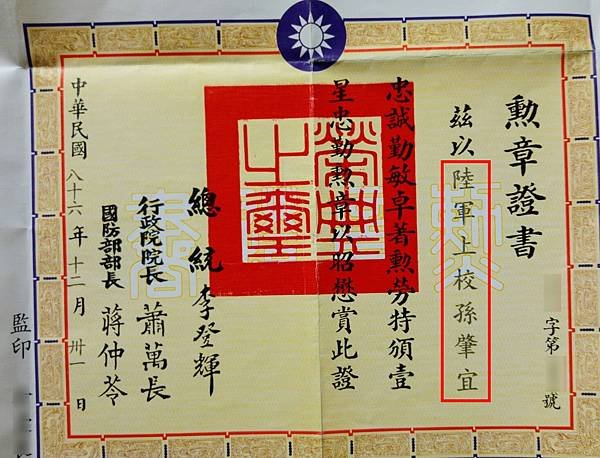 勲章證書
字第 號
茲以陸軍上校孫肇宜
忠誠勤敏卓著勲勞特頒壹
星忠勤勲章以昭懋賞此證
榮典之璽
總統 李登輝
行政院院長 蕭萬長
國防部部長 蔣仲苓
中華民國八十六年十二月卅一日
監印